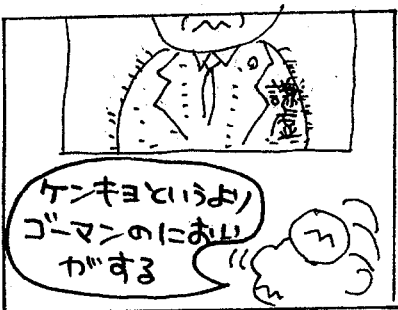 謙虚
ケンキョというより
ゴーマンのにおい
がする